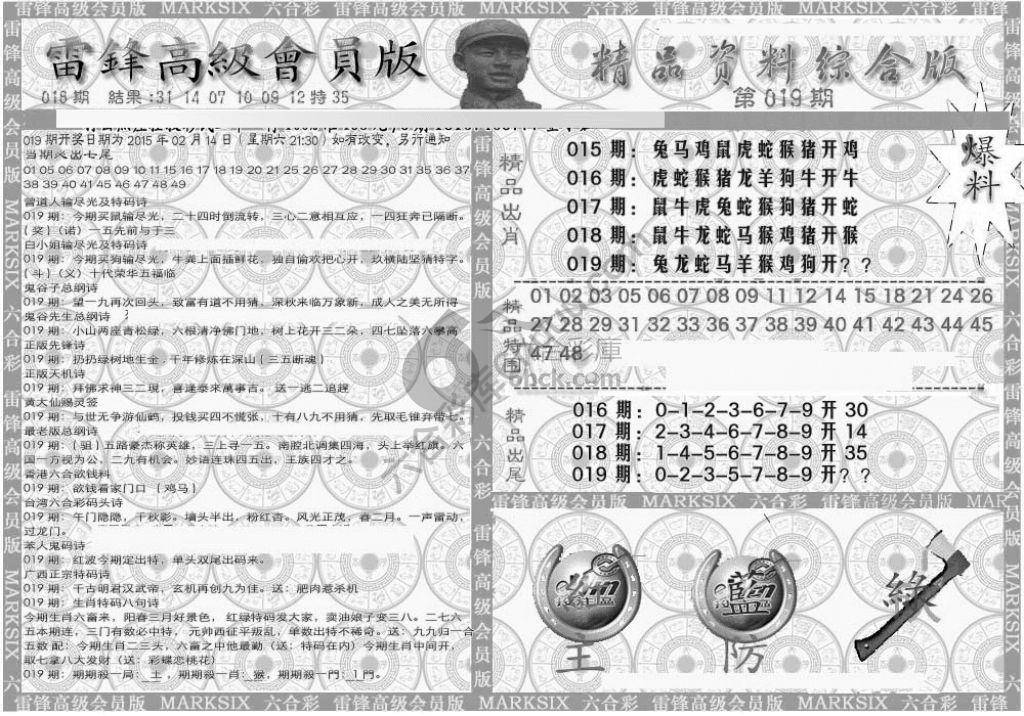 雷锋高级会员版 MARKSIX 六合彩 雷锋高级会员版 MARKSIX 六合彩 雷锋高级会员版 MARKSIX 六合彩 雷锋
雷鋒高級會員版
精品资料综合版
018期 結果:31 14 07 10 09 12特35
第019期
019期开奖日期为2015年02月14日(星期六21:30)如有改变,另行通知
01 05 06 07 08 09 10 11 15 16 17 18 19 20 21 25 26 27 28 29 30 31 35 36 37
38 39 40 41 45 46 47 48 49
曾道人输尽光及特码诗
019期:今期买鼠输尽光,二十四时倒流转,三心二意相互应,一四狂奔已隔断。
{奖}(诺)一五先前与于三
白小姐输尽光及特码诗
019期:今期买狗输尽光,牛粪上面插鲜花,独自偷欢把心开,玖横陆坚猜特字。
{斗}(义)十代荣华五福临
鬼谷子总纲诗
019期:望一九再次回头,致富有道不用猜,深秋来临万象新,成人之美无所得
鬼谷先生总纲诗
019期:小山两座青松绿,六根清净佛门地,树上花开三二朵,四七坠落六攀高
正版先锋诗
019期:扔扔绿树地生金,千年修炼在深山{三五断魂}
正版天机诗
019期:拜佛求神三二現,喜逢泰来萬事吉。送一逃二追趕
黄大仙赐灵签
019期:与世无争游仙鹤,投钱买四不慌张,十有八九不用猜,先取毛锥弃带七。
最老版总纲诗
019期:{驵}五路豪杰称英雄,三上寻一五。南腔北调集四海,头上举红旗。六
国一方视为公,二九有机会。妙语连珠四五出,王族四才之。
香港六合欲钱料
019期:欲钱看家门口 {鸡马}
台湾六合彩码头诗
019期:午门隐隐,千秋影。墙头半出,粉红杏。风光正茂,春二月。一声雷动,
过龙门。
苯人鬼码诗
019期:红波今期定出特,单头双尾出码来。
广西正宗特码诗
019期:千古明君汉武帝,玄机再创九为佳。送:肥肉惹杀机
019期:生肖特码八句诗
今期生肖六畜来,阳春三月好景色,红绿特码发大家,卖油娘子变三八。二七六
五本期连,三门有数必中特,元帅西征平叛乱,单数出特不稀奇。送:九九归一合
五数配:今期生肖二三头,六畜之中他最勤(送:特码在内)今期生肖中间开,
取七拿八大发财(送:彩蝶恋桃花)
019期:期期殺一局:主,期期殺一肖:猴,期期殺一門:1門。
精品出肖
015期:兔马鸡鼠虎蛇猴猪开鸡
016期:虎蛇猴猪龙羊狗牛开牛
017期:鼠牛虎兔蛇猴狗猪开蛇
018期:鼠牛龙蛇马猴鸡猪开猴
019期:兔龙蛇马羊猴鸡狗开??
爆料
精品特围
01 02 03 05 06 07 08 09 11 12 14 15 18 21 24 26
27 28 29 31 32 33 36 37 38 39 40 41 42 43 44 45
47 48
精品出尾
016期:0-1-2-3-6-7-9开30
017期:2-3-4-6-7-8-9开14
018期:1-4-5-6-7-8-9开35
019期:0-2-3-5-7-8-9开??
雷锋高级会员版 MARKSIX 六合彩 雷锋高级会员版 MAR
主
藍
防
綠
雷锋高级会员版 MARKSIX 六合彩 雷锋高级会员版 MARKSIX 六合彩 雷锋高级会员版 MARKSIX 六合彩 雷锋